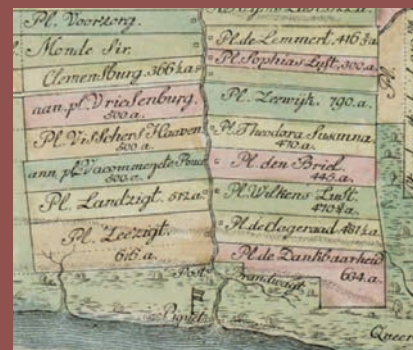 Pl. Voorzorg.
Monde Sir.
Clemensburg. 366½.a.
aan. pl. Vriesenburg.
500.a.
Pl. Visschers Haaven
500.a.
ann. pl.
500.a.
Pl. Landzigt. 512.a.
Pl. Zeezigt.
616.a.
Pl. de Lemmert. 416⅔.a.
Pl. Sophias Lust. 300.a.
Pl. Zeewijk. 790.a.
Pl. Theodora Susanna.
470.a.
Pl. den Briel.
445.a.
Pl. Wilkens Lust.
Pl. de Dageraad
Pl. de Dankbaarheid
634.a.
Post
Brandwagt.
Piquet
Pl.